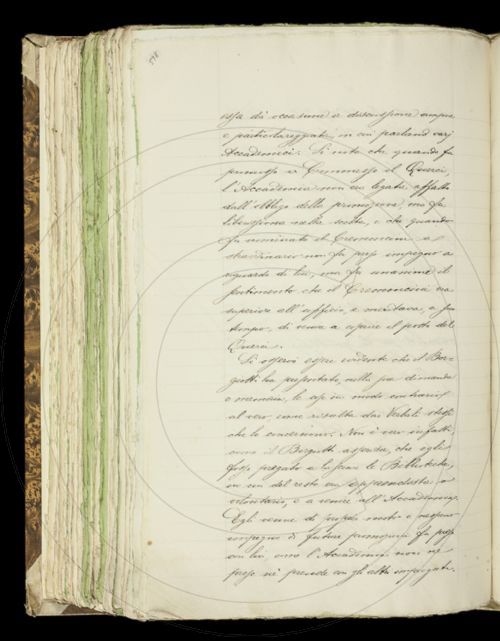 578
essa dà occasione a discussione ampia
e particolareggiata, in cui parlano varj
Accademici. Si nota che quando fu
promosso a Commesso il Querci,
l'Accademia non era legata affatto
dall'obbligo della promozione, ma fu
liberissima nella scelta, e che quando
fu nominato il Cremoncini a
straordinario non fu preso impegno a
riguardo di lui, ma fu unanime il
sentimento che il Cremoncini era
superiore all'ufficio, e meritava, a suo
tempo, di venire a coprire il posto del
Querci.
Si osservò essere evidente che il
ha presentato, nella sua dimanda
e memoria, le cose in modo contrario
al vero, come risulta dai Verbali stessi
che lo concernono. Non è vero infatti
come il asserisce, che egli
fosse pregato a lasciare la Biblioteca,
in cui del resto era apprendista, o
volontario, e a venire all'Accademia.
Egli venne di propria volontà e nessuno
impegno di futura promozione fu preso
con lui, come l'Accademia non ne
prese nè prende con gli altri impiegati.